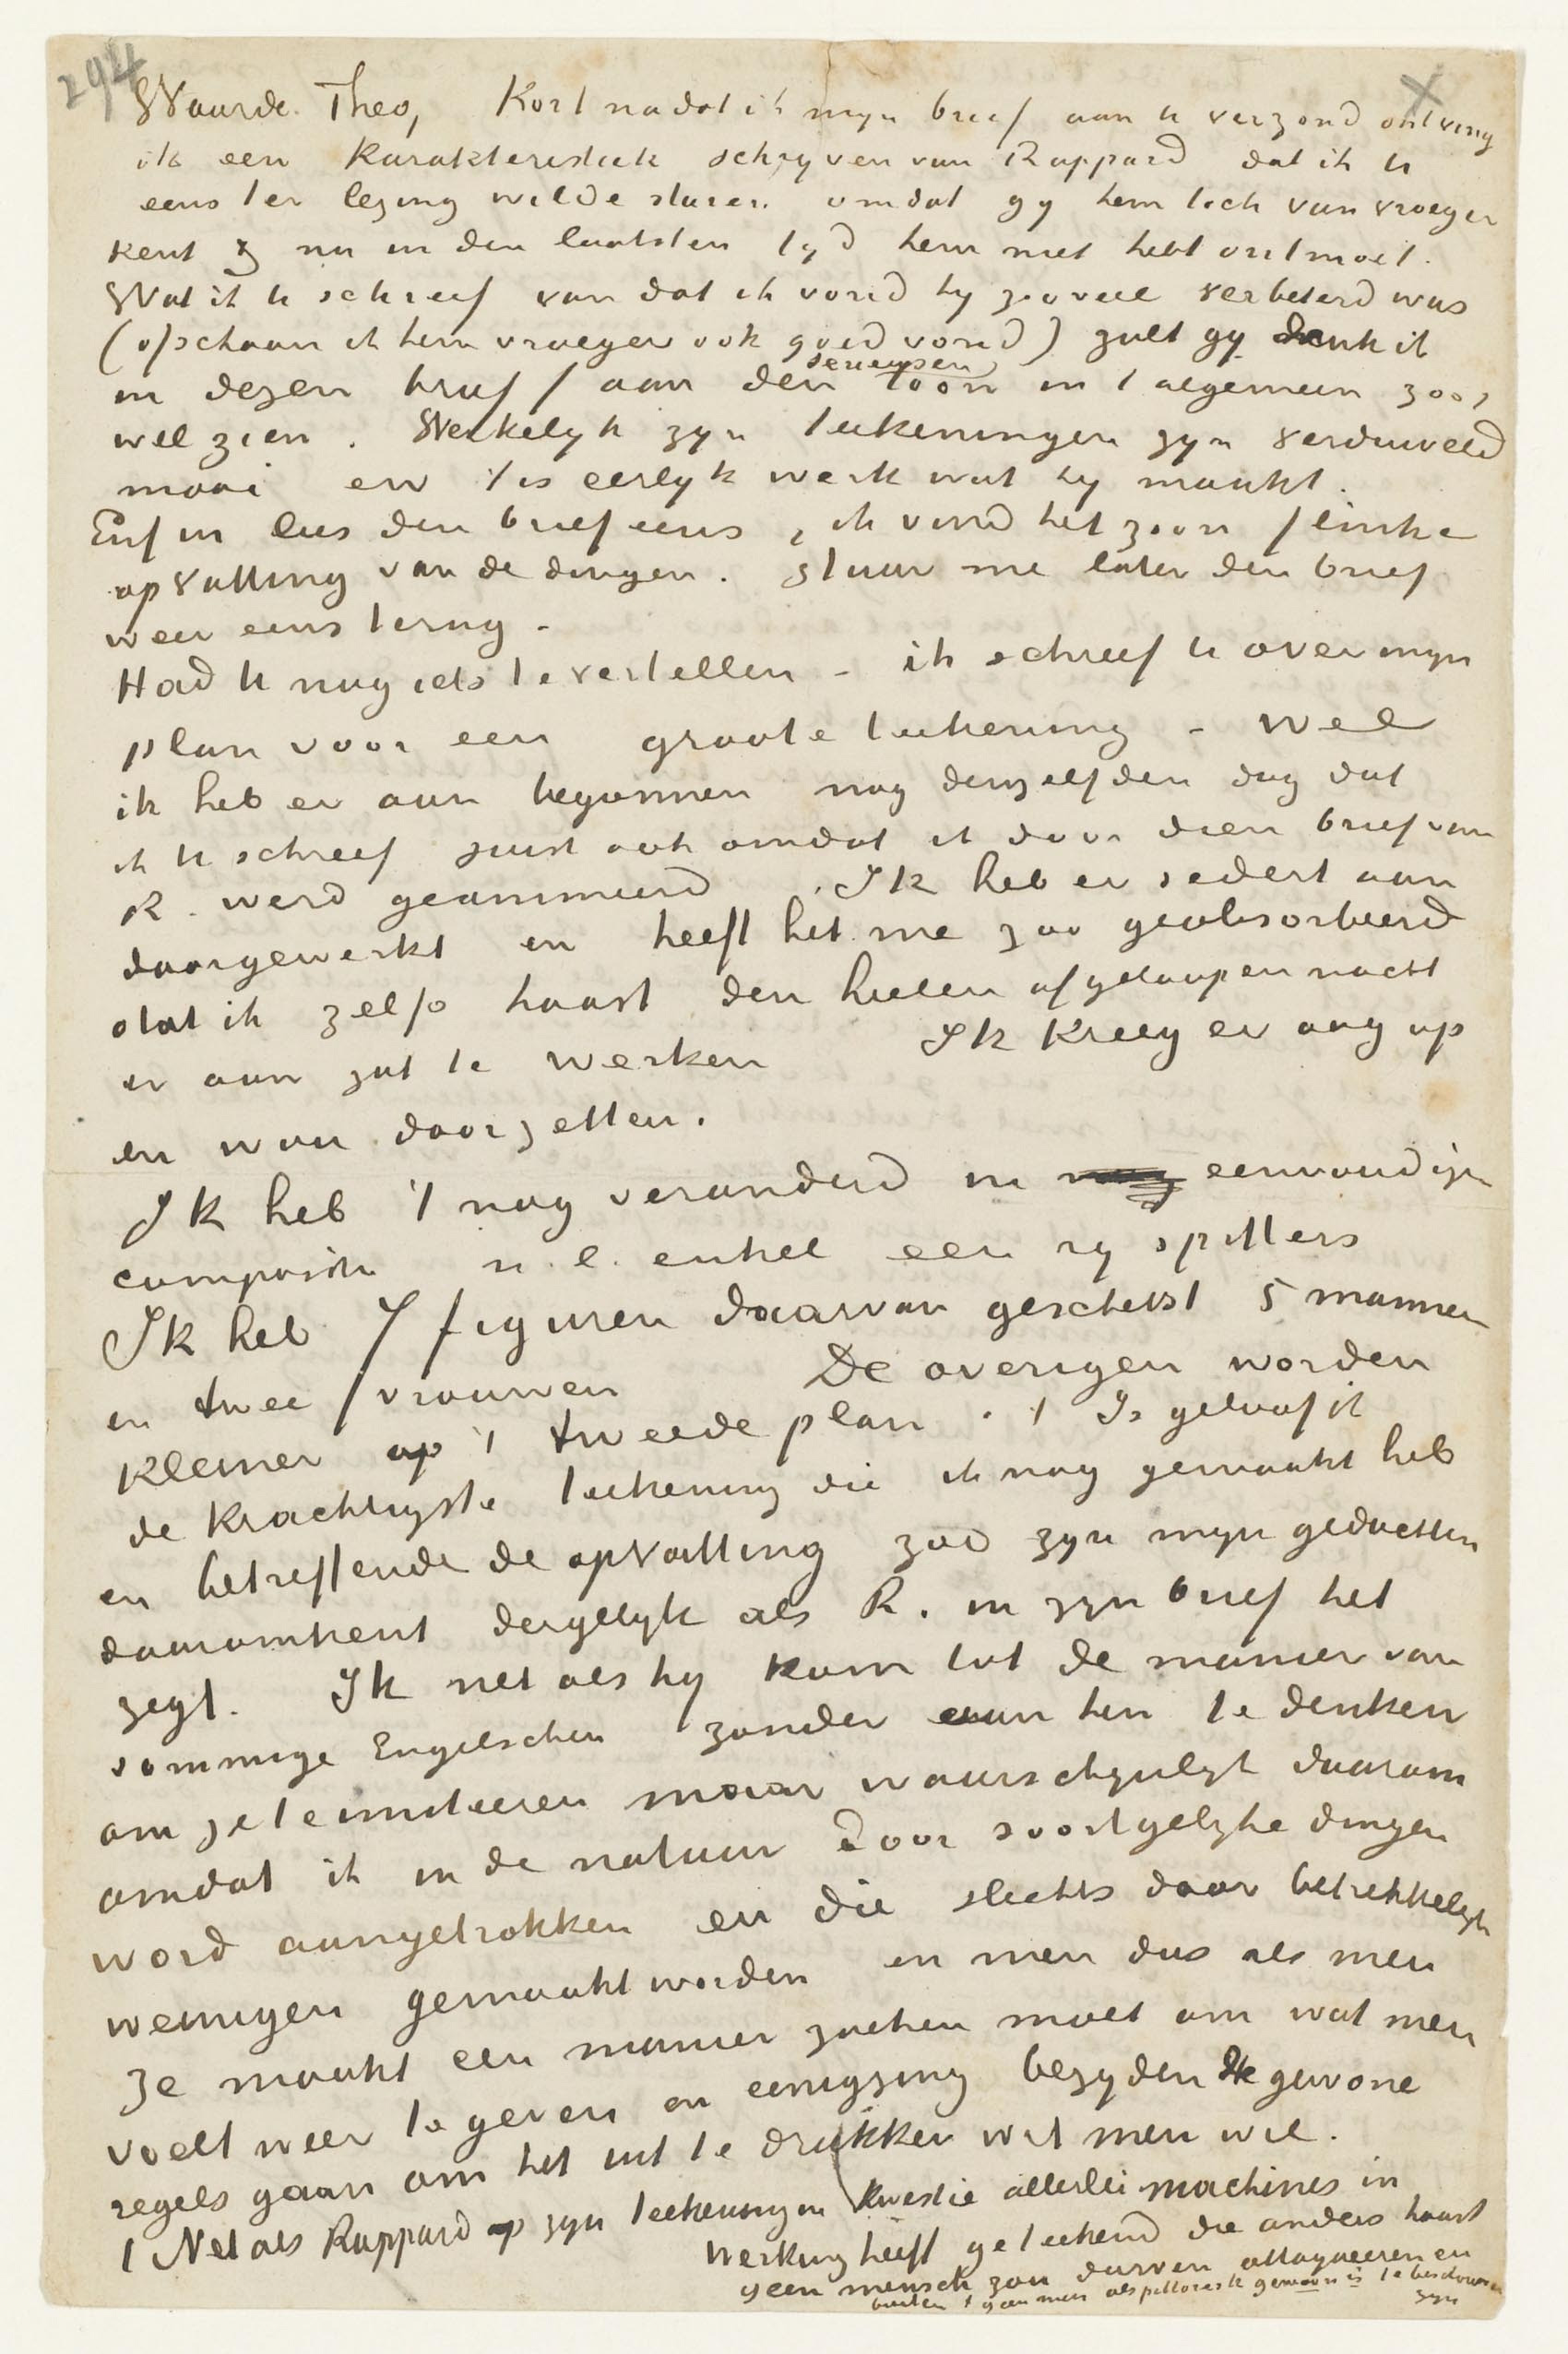 294
Waarde Theo, Kort nadat ik mijn brief aan u verzond ontving
ik een karakteristiek schrijven van Rappard dat ik u
eens ter lezing wilde sturen omdat gij hem toch van vroeger
kent & nu in den laatsten tijd hem niet hebt ontmoet.
Wat ik u schreef van dat ik vond hij zooveel verbeterd was
(ofschoon ik hem vroeger ook goed vond) zult gij denk ik
in dezen brief / aan den serieusen toon in t algemeen zoo /
wel zien. Werkelijk zijn teekeningen zijn verduiveld
mooi en 't is eerlijk werk wat hij maakt.
Enfin lees den brief eens, ik vind het zoon flinke
opvatting van de dingen. Stuur me later den brief
weer eens terug -
Had u nog iets te vertellen - ik schreef u over mijn
plan voor een groote teekening - wel
ik heb er aan begonnen nog denzelfden dag dat
ik u schreef juist ook omdat ik door dien brief van
R. werd geanimeerd. Ik heb er sedert aan
doorgewerkt en heeft het me zoo geabsorbeerd
dat ik zelfs haast den heelen afgeloopen nacht
er aan zat te werken Ik kreeg er oog op
en wou doorzetten.
Ik heb 't nog veranderd in eenvoudiger
compositie n.l. enkel een rij spitters
Ik heb 7 figuren daarvan geschetst 5 mannen
en twee vrouwen De overigen worden
kleiner op 't tweede plan. 't Is geloof ik
de krachtigste teekening die ik nog gemaakt heb
en betreffende de opvatting zoo zijn mijn gedachten
daaromtrent dergelijk als R. in zijn brief het
zegt. Ik net als hij kom tot de manier van
sommige Engelschen zonder aan hen te denken
om ze te imiteeren maar waarschijnlijk daarom
omdat ik in de natuur door soortgelijke dingen
word aangetrokken en die slechts door betrekkelijk
weinigen gemaakt worden en men dus als men
ze maakt een manier zoeken moet om wat men
voelt weer te geven en eenigzins bezijden de gewone
regels gaan om het uit te drukken wat men wil.
/ Net als Rappard op zijn teekeningen kwestie allerlei machines in
werking heeft geteekend die anders haast
geen mensch zou durven attaqueeren en
buiten 't geen men als pittoresk gewoon is te beschouwen
zijn